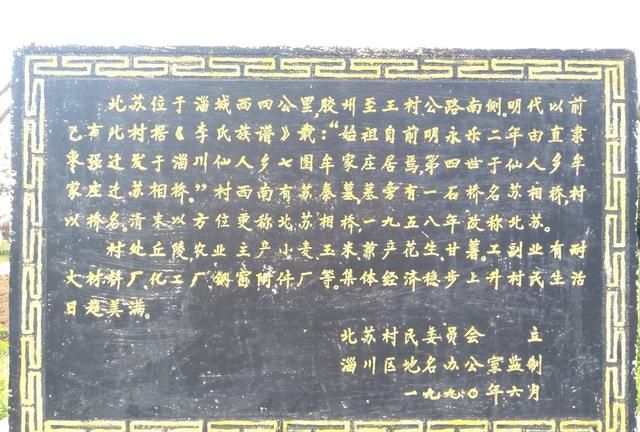 北苏位于淄城西四公里,胶州至王村公路南侧.明代以前
已有此村.据《李氏族谱》载:"始祖自前明永乐二年由直隶
枣强迁发于淄川仙人乡七图牟家庄居焉,第四世于仙人乡牟
家庄迁苏相桥."村西南有苏秦墓,墓旁有一石桥名苏相桥,村
以桥名.清末以方位更称北苏相桥,一九五八年改称北苏。
村处丘陵,农业主产小麦、玉米,兼产花生、甘薯.工副业有耐
火材料厂、化工厂、钢窗附件厂等.集体经济稳步上升村民生活
日趋美满。
北苏村民委员会 立
淄川区地名办公室监制
一九九〇年六月